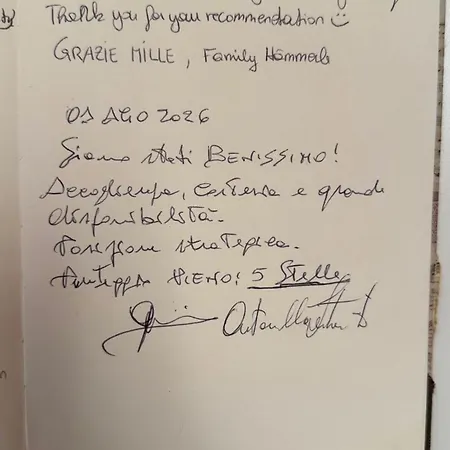 Thank you for your recommendation ☺
GRAZIE MILLE, Family Hommels
01 AGO 2026
Siamo stati BENISSIMO!
Accoglienza, cortesia e grande
disponibilità.
Posizione strategica.
Punteggio PIENO! 5 Stelle